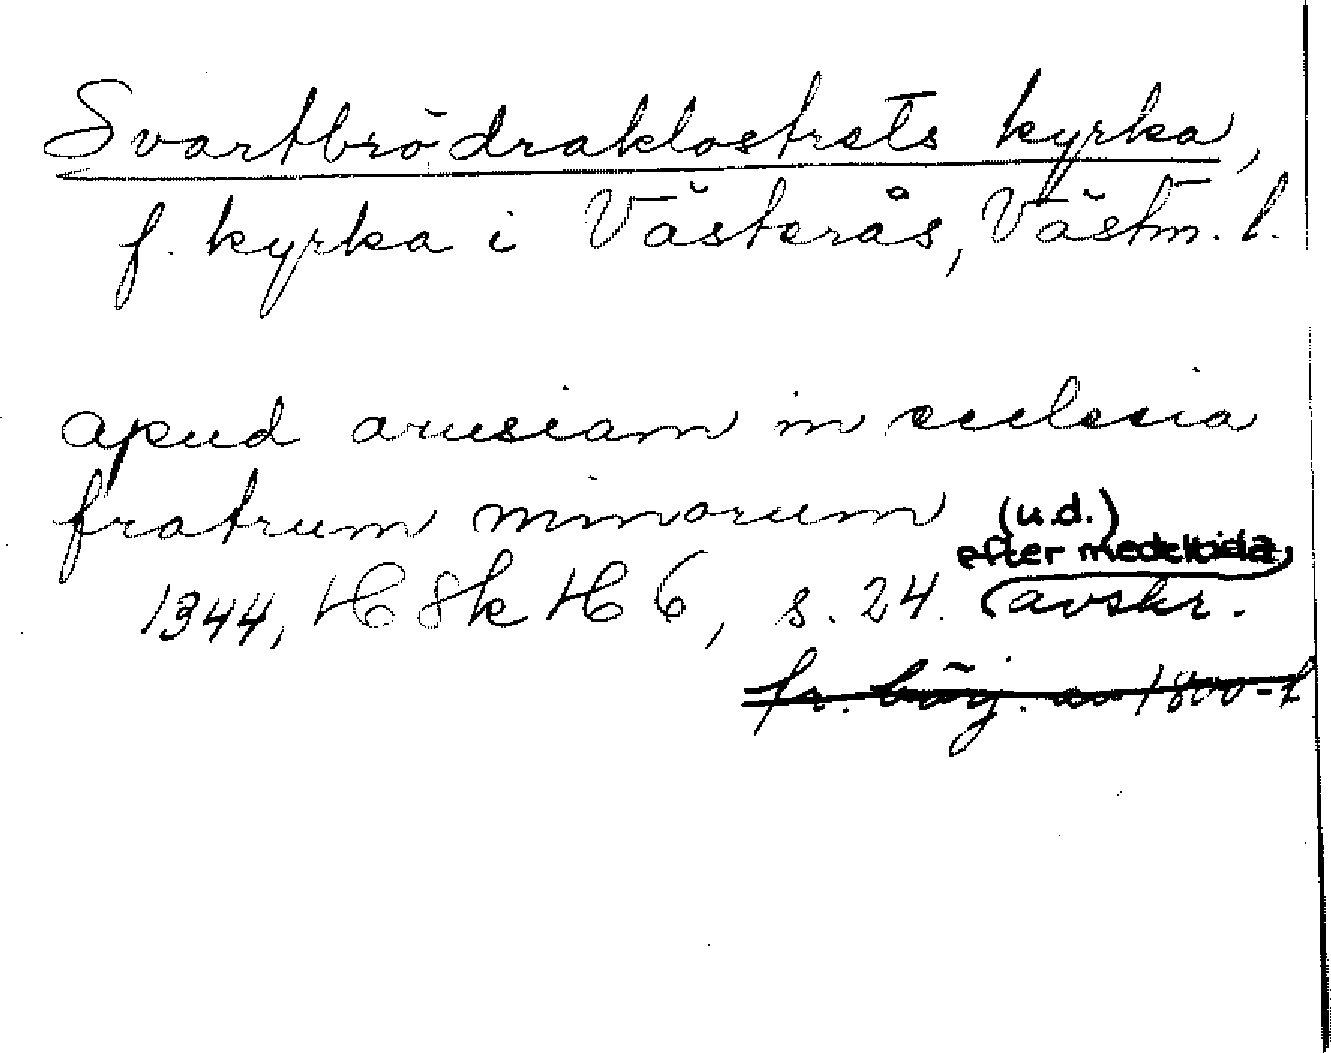 Svartbrödraklostrets kyrka,
f. kyrka i Västerås, Västm. l.
apud arusiam in ecclesia
fratrum minorum (u.d.)
efter medeltida
1344, HSk H 6, s. 24. avskr.
fr. börj. av 1800-t